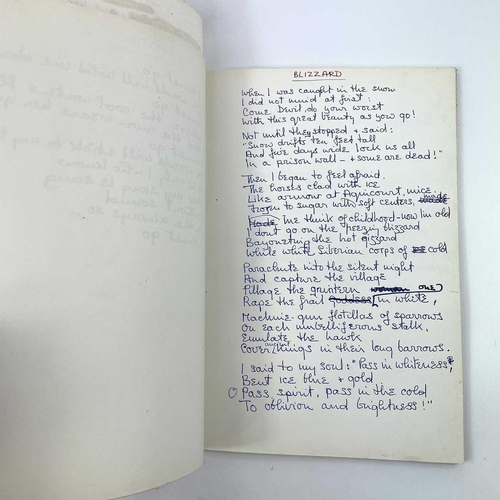 BLIZZARD
When I was caught in the snow
I did not mind at first:
Come Devil, do your worst
With this great beauty as you go!
Not until they stopped + said:
"Snow drifts ten feet tall
And five days wide lock us all
In a prison wall – + some are dead!"
Then I began to feel afraid.
The horses clad with ice
Like armour at Agincourt, mice
Frozen to sugar with soft centers,
Made me think of childhood – now I'm old
I dont go on the freezing blizzard
Bayonetting the hot gizzard
White white Siberian corps of cold
Parachute into the silent night
And capture the village
Pillage the
Rape the frail goddess in white,
Machine-gun flotillas of sparrows
On each umbelliferous stalk,
Emulate the hawk
Cover ancient things in their long barrows.
I said to my soul: "Pass in whiteness,
Bent ice blue + gold
O Pass, spirit, pass in the cold
To oblivion and brightness!"